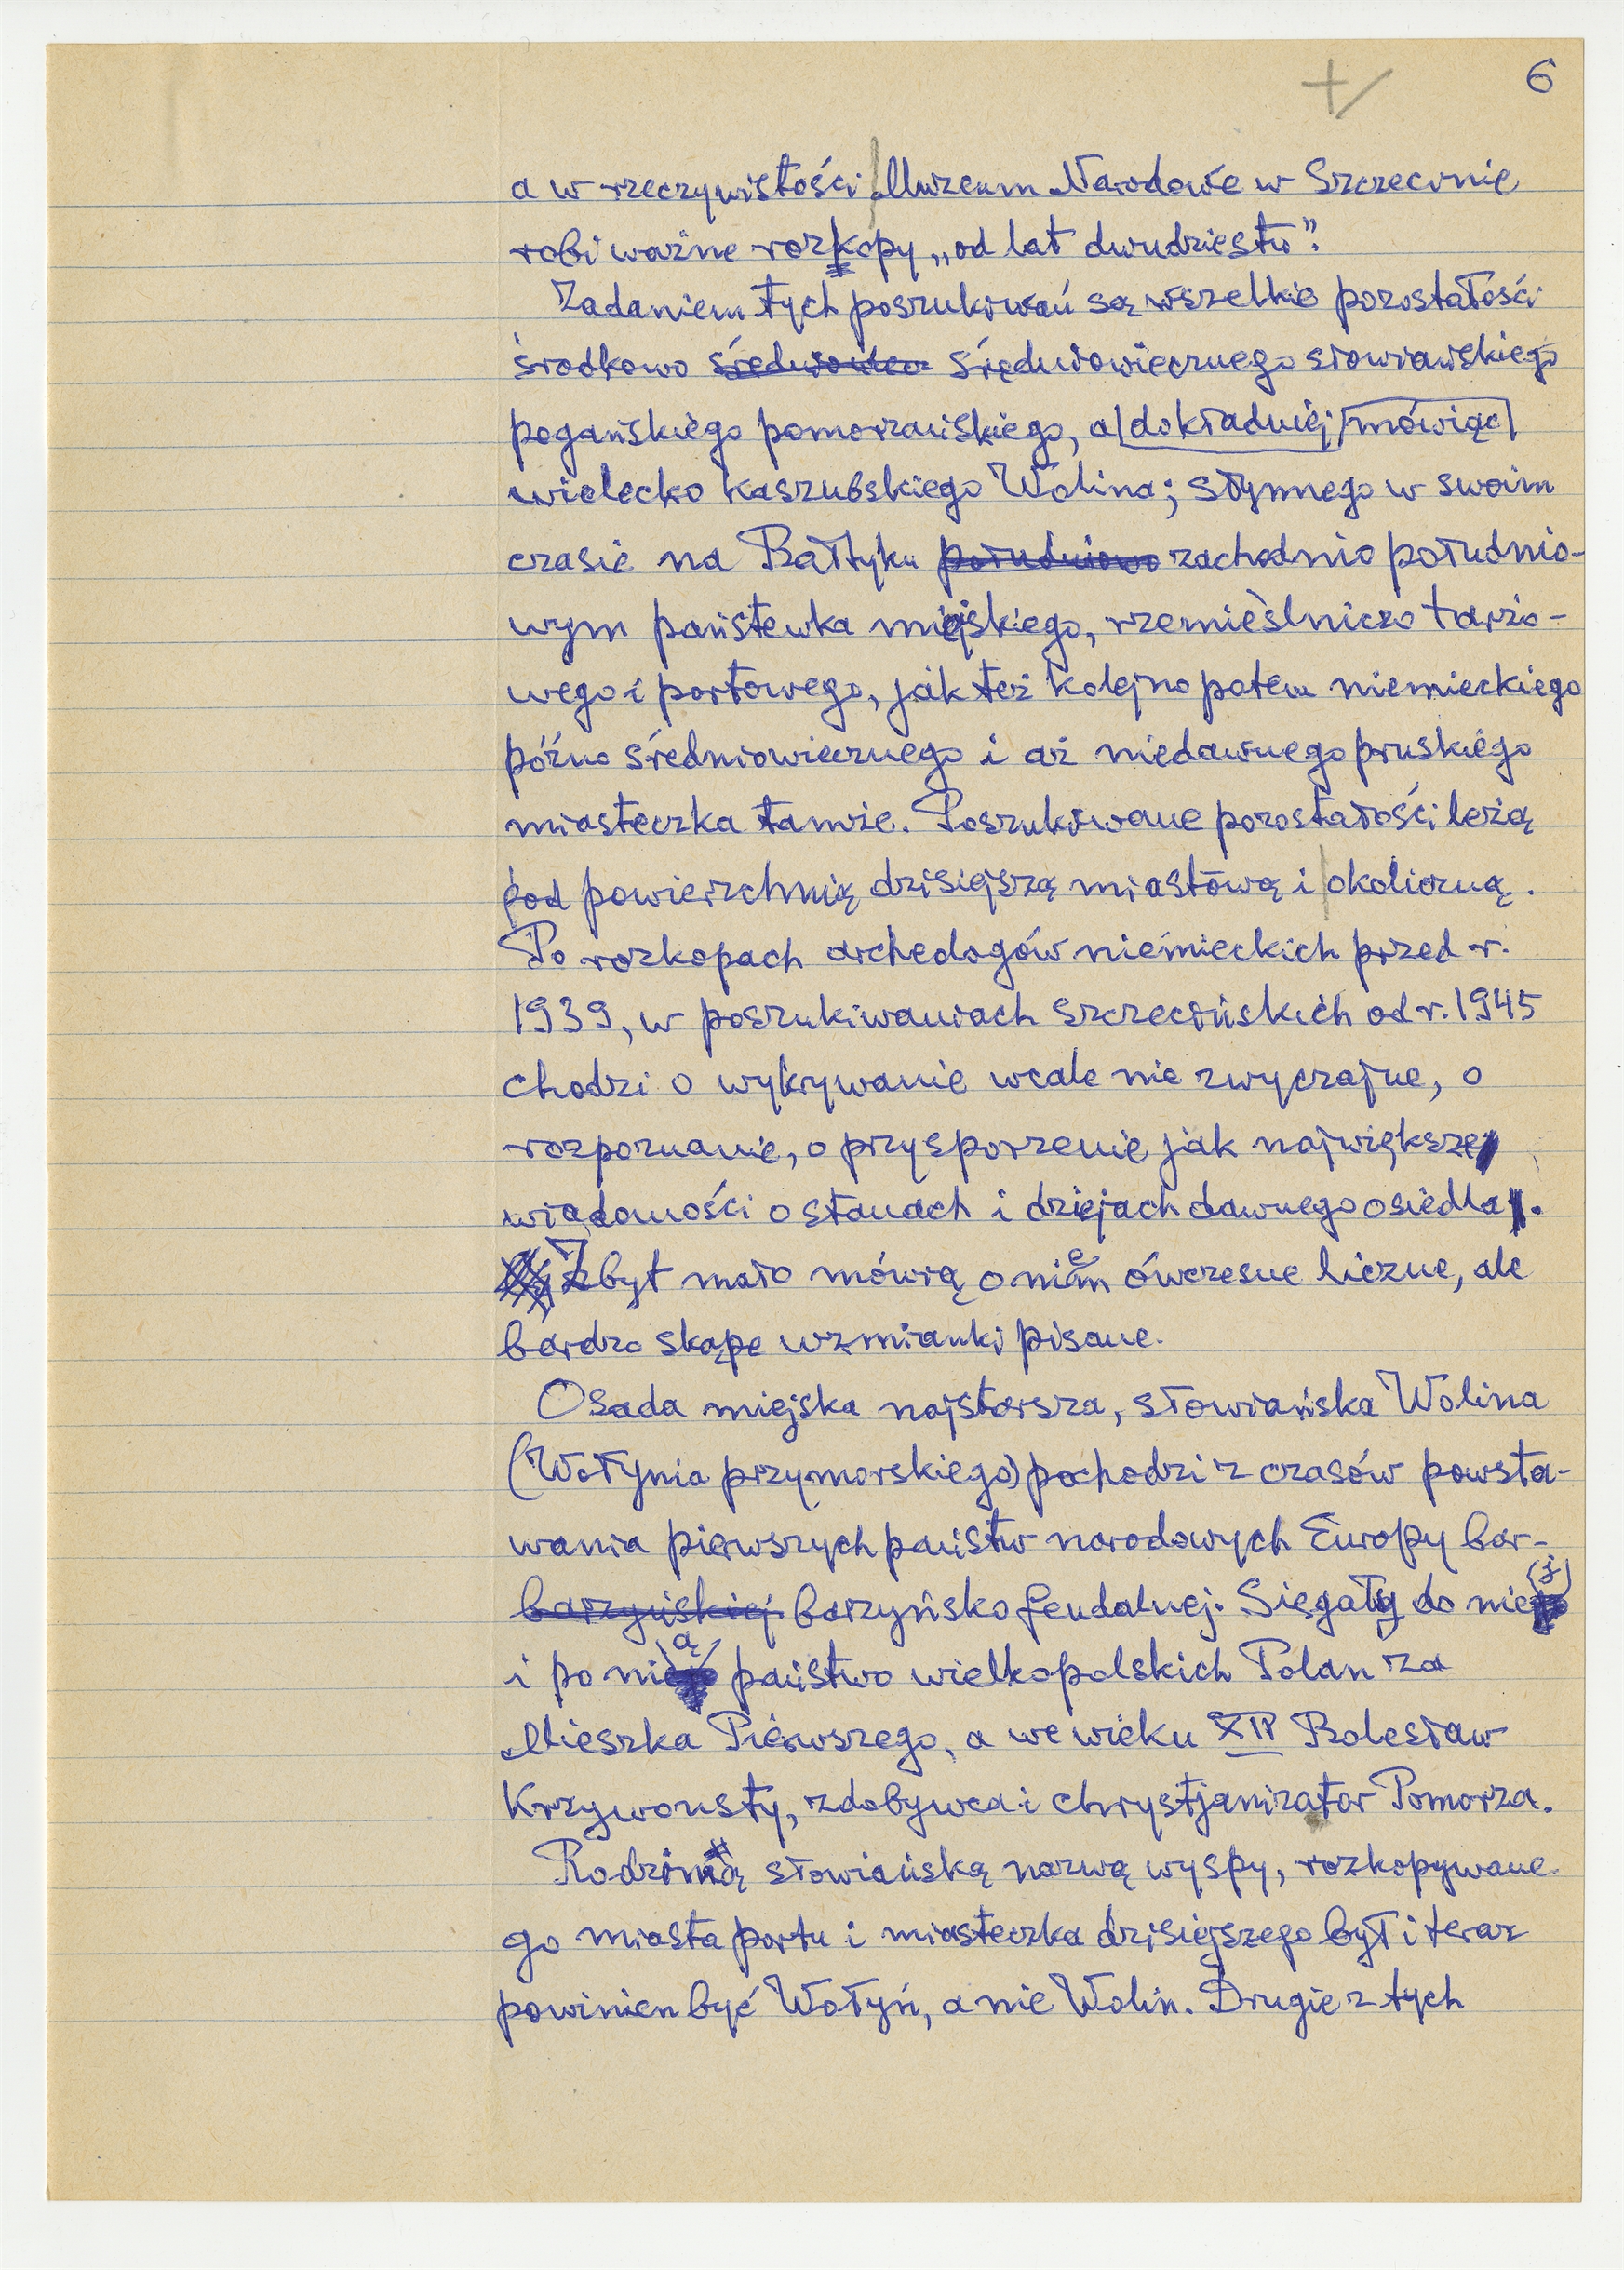 6
a w rzeczywistości Muzeum Narodowe w Szczecinie
robi ważne rozkopy „od lat dwudziestu”.
Zadaniem tych poszukiwań są wszelkie pozostałości
środkowo średniowiecz średniowiecznego słowiańskiego
pogańskiego pomorzańskiego, a dokładniej mówiąc
wielecko kaszubskiego Wolina; słynnego w swoim
czasie na Bałtyku południowo zachodnio południo-
wym państewka miejskiego, rzemieślniczo targo-
wego i portowego, jak też kolejno potem niemieckiego
późno średniowiecznego i aż niedawnego pruskiego
miasteczka tamże. Poszukiwane pozostałości leżą
pod powierzchnią dzisiejszą miastową i okoliczną.
Po rozkopach archeologów niemieckich przed r.
1939, w poszukiwaniach szczecińskich od r. 1945
chodzi o wykrywanie wcale nie zwyczajne, o
rozpoznanie, o przysporzenie jak największe
wiadomości o stanach i dziejach dawnego osiedla.
Zbyt mało mówią o niem ówczesne liczne, ale
bardzo skąpe wzmianki pisane.
Osada miejska najstarsza, słowiańska Wolina
(Wołynia przymorskiego) pochodzi z czasów powsta-
wania pierwszych państw narodowych Europy bar-
barzyńskiej barzyńsko feudalnej. Sięgały do niej
i po nią państwo wielkopolskich Polan za
Mieszka Pierwszego, a we wieku XII Bolesław
Krzywousty, zdobywca i chrystjanizator Pomorza.
Rodzimą słowiańską nazwą wyspy, rozkopywane-
go miasta portu i miasteczka dzisiejszego był i teraz
powinien być Wołyń, a nie Wolin. Drugie z tych